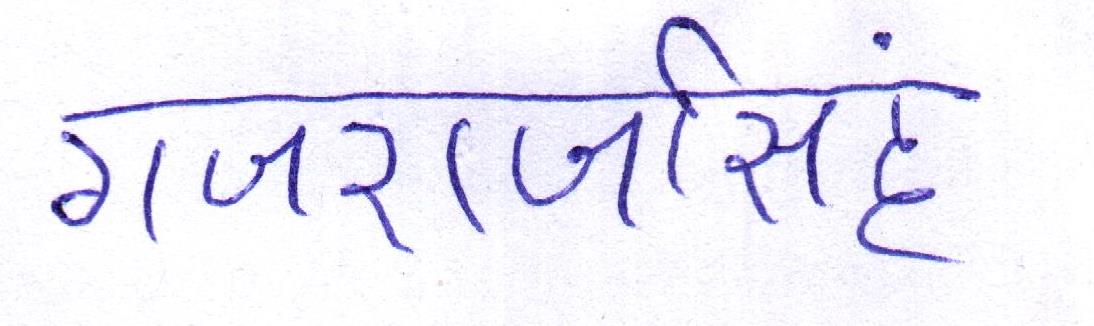 गजराजसिहं